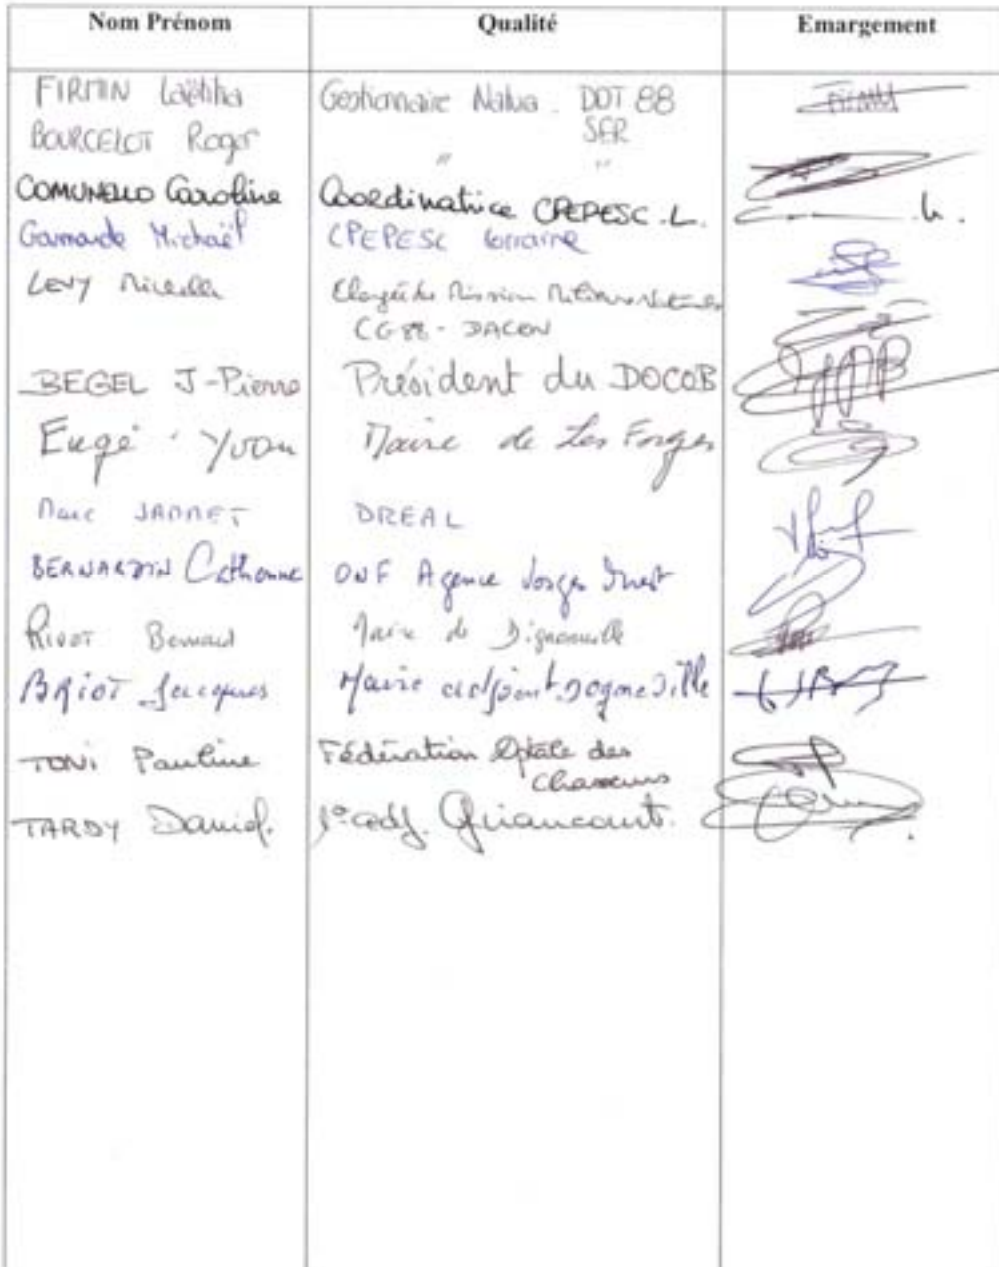 Nom Prénom Qualité Emargement
FIRMIN Laëtitia Gestionnaire Natura DDT 88
SER
BOURCELOT Roger " "
COMUNELLO Caroline Coordinatrice CPEPESC.L.
Gamarde Michaël CPEPESC lorraine
LEVY Mireille Chargée de Mission
CG 88 - DACEN
BEGEL J-Pierre Président du DOCOB
Eugé Yvon Maire de Les Forges
Marc DREAL
BERNARDIN Catherine ONF Agence Vosges Ouest
RIVOT Bernard Maire de Dignonville
BRIOT Jacques Maire adjoint Dogneville
TONI Pauline Fédération dptale des
Chasseurs
TARDY Daniel. 1° adj.